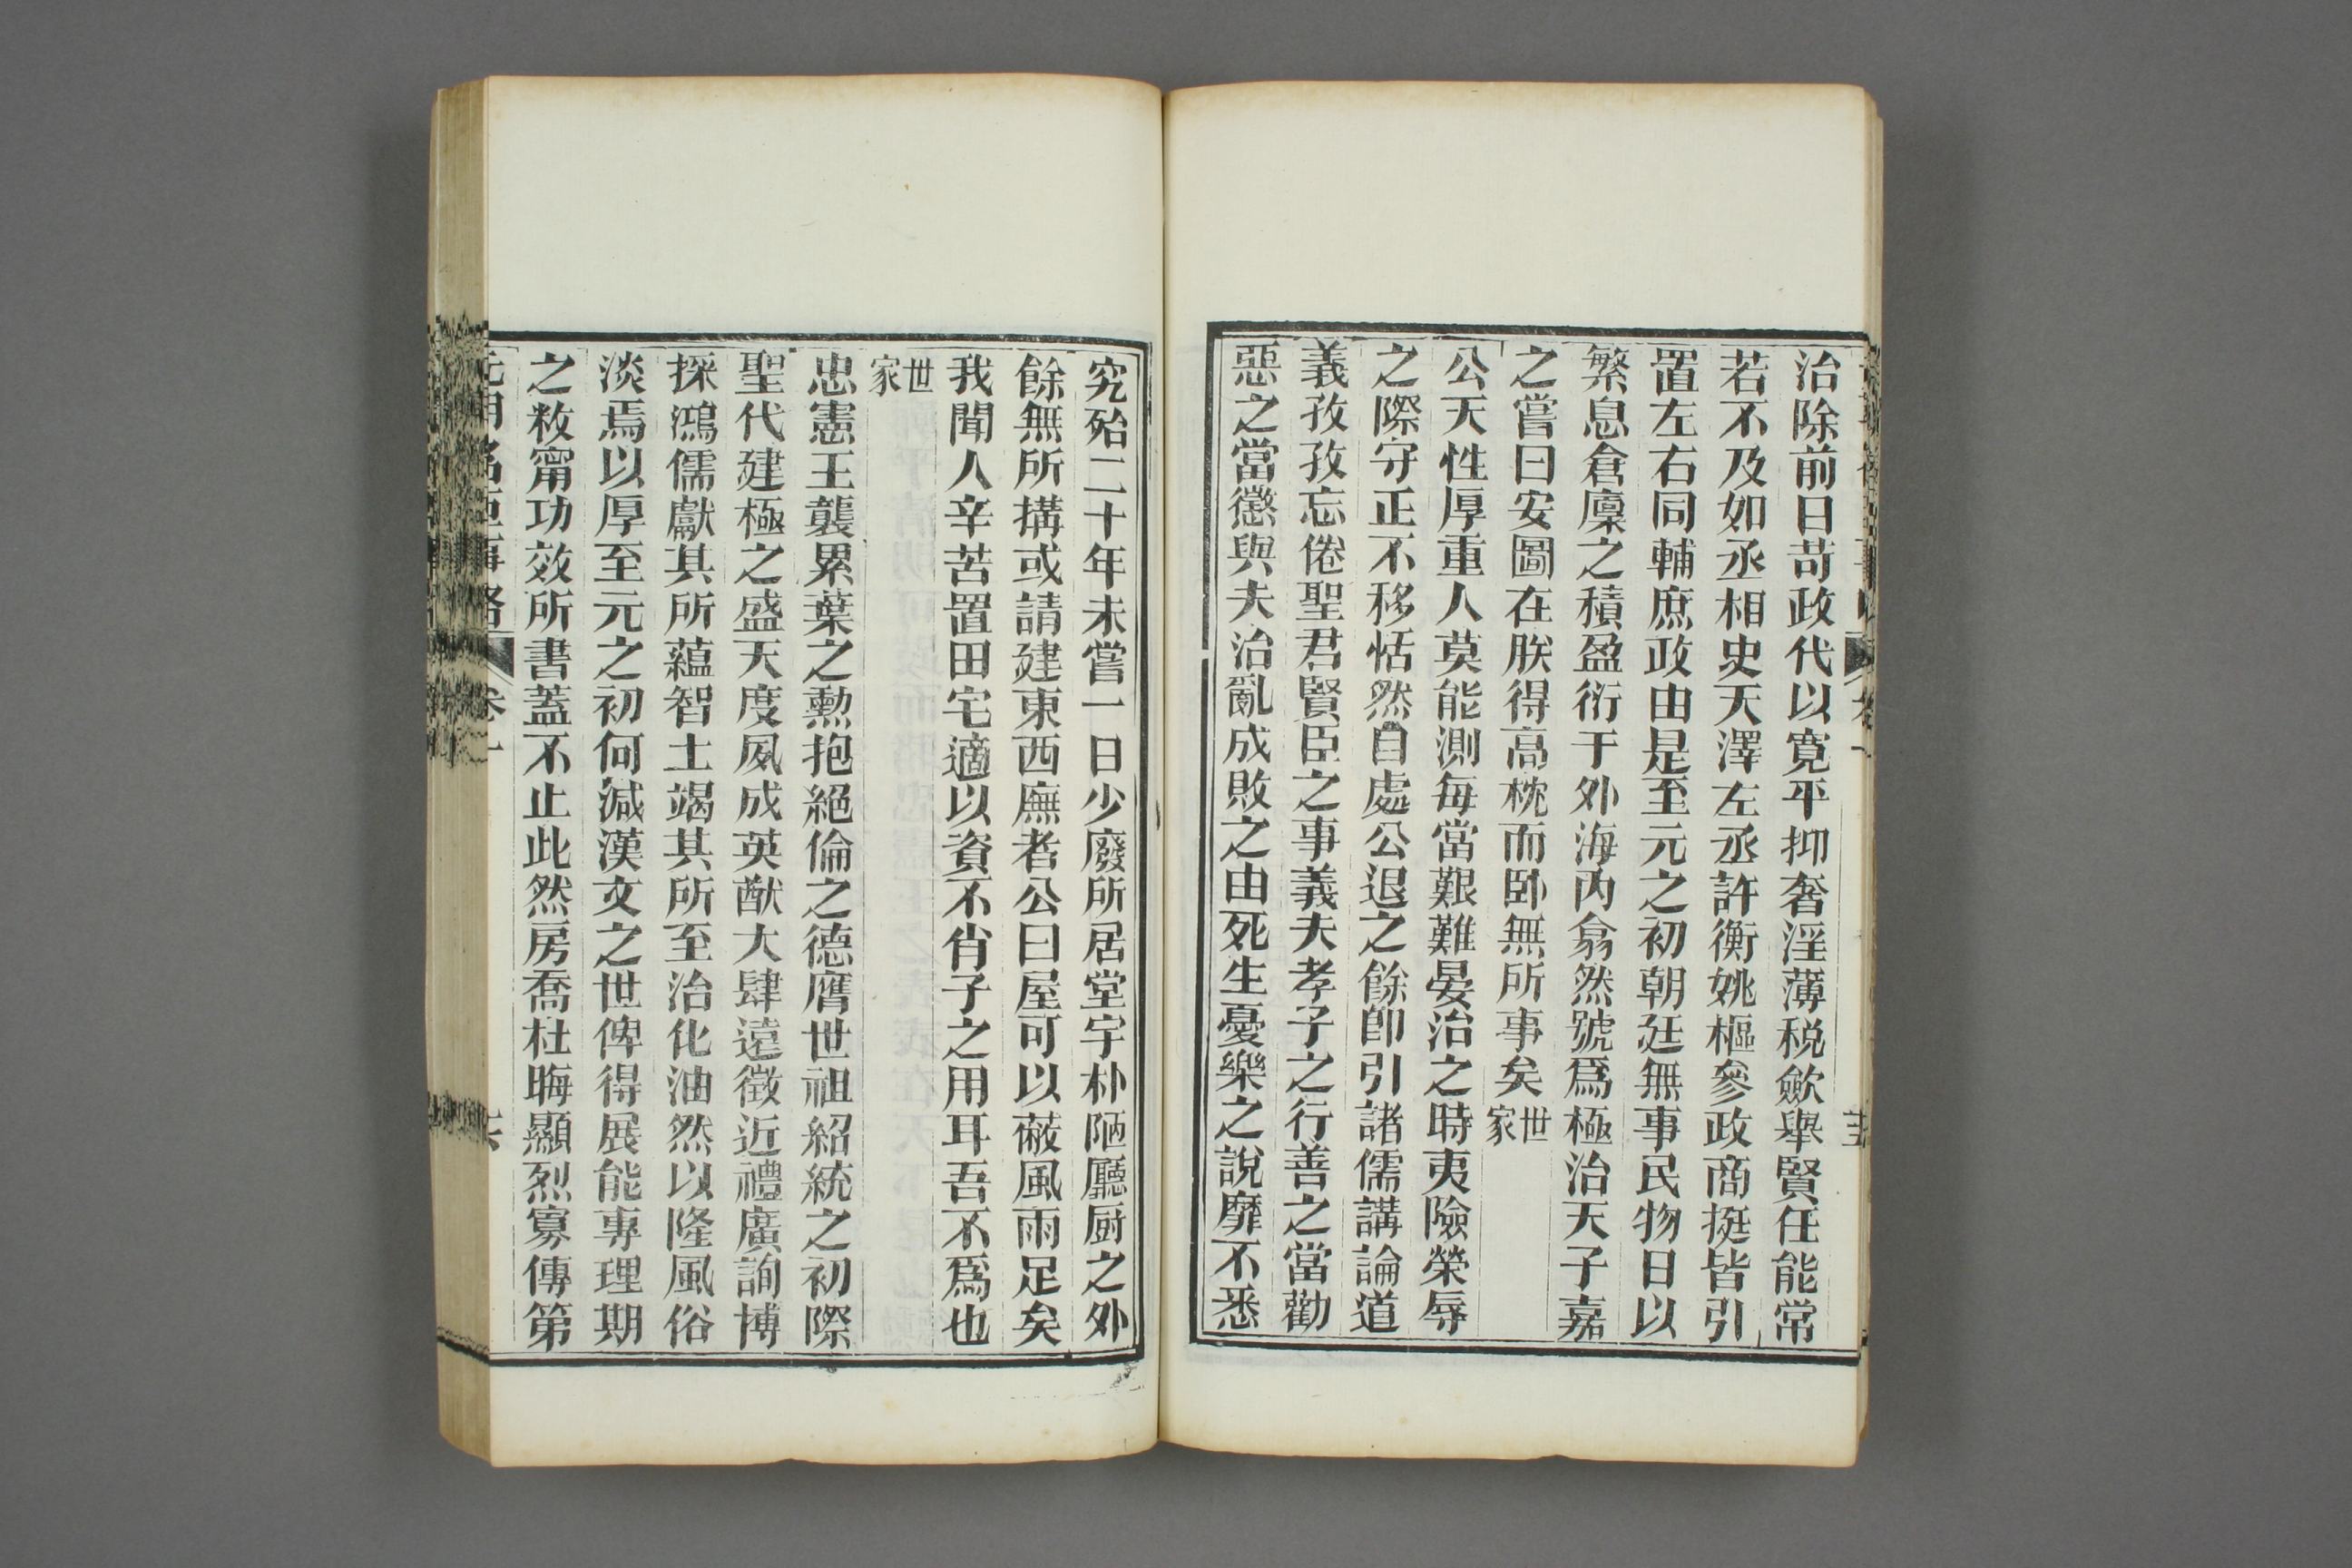 治除前日苛政代以寛平抑奢淫薄税歛舉賢任能常
若不及如丞相史天澤左丞許衡姚樞參政商挺皆引
置左右同輔庶政由是至元之初朝廷無事民物日以
繁息倉廩之積盈衍于外海內翕然號爲極治天子嘉
之嘗曰安圖在朕得高枕而卧無所事矣世家
公天性厚重人莫能測每當艱難晏治之時夷險榮辱
之際守正不移恬然自處公退之餘卽引諸儒講論道
義孜孜忘倦聖君賢臣之事義夫孝子之行善之當勸
惡之當懲與夫治亂成敗之由死生憂樂之說靡不悉
究殆二十年未嘗一日少廢所居堂宇朴陋廳厨之外
餘無所搆或請建東西廡者公曰屋可以蔽風雨足矣
我聞人辛苦置田宅適以資不肖子之用耳吾不爲也
世家
忠憲王襲累葉之勲抱絕倫之德膺世祖紹統之初際
聖代建極之盛天度夙成英猷大肆遠徵近禮廣詢博
採鴻儒獻其所蘊智士竭其所至治化油然以隆風俗
淡焉以厚至元之初何減漢文之世俾得展能專理期
之敉甯功效所書蓋不止此然房喬杜晦顯烈寡傳第
元朝名臣事略 卷一